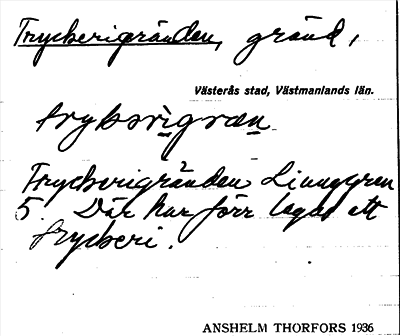 Tryckerigränden, gränd,
Västerås stad, Västmanlands län.
trykərigræn
Tryckerigränden Ljunggren
5. Där har förr legat ett
tryckeri.
ANSHELM THORFORS 1936